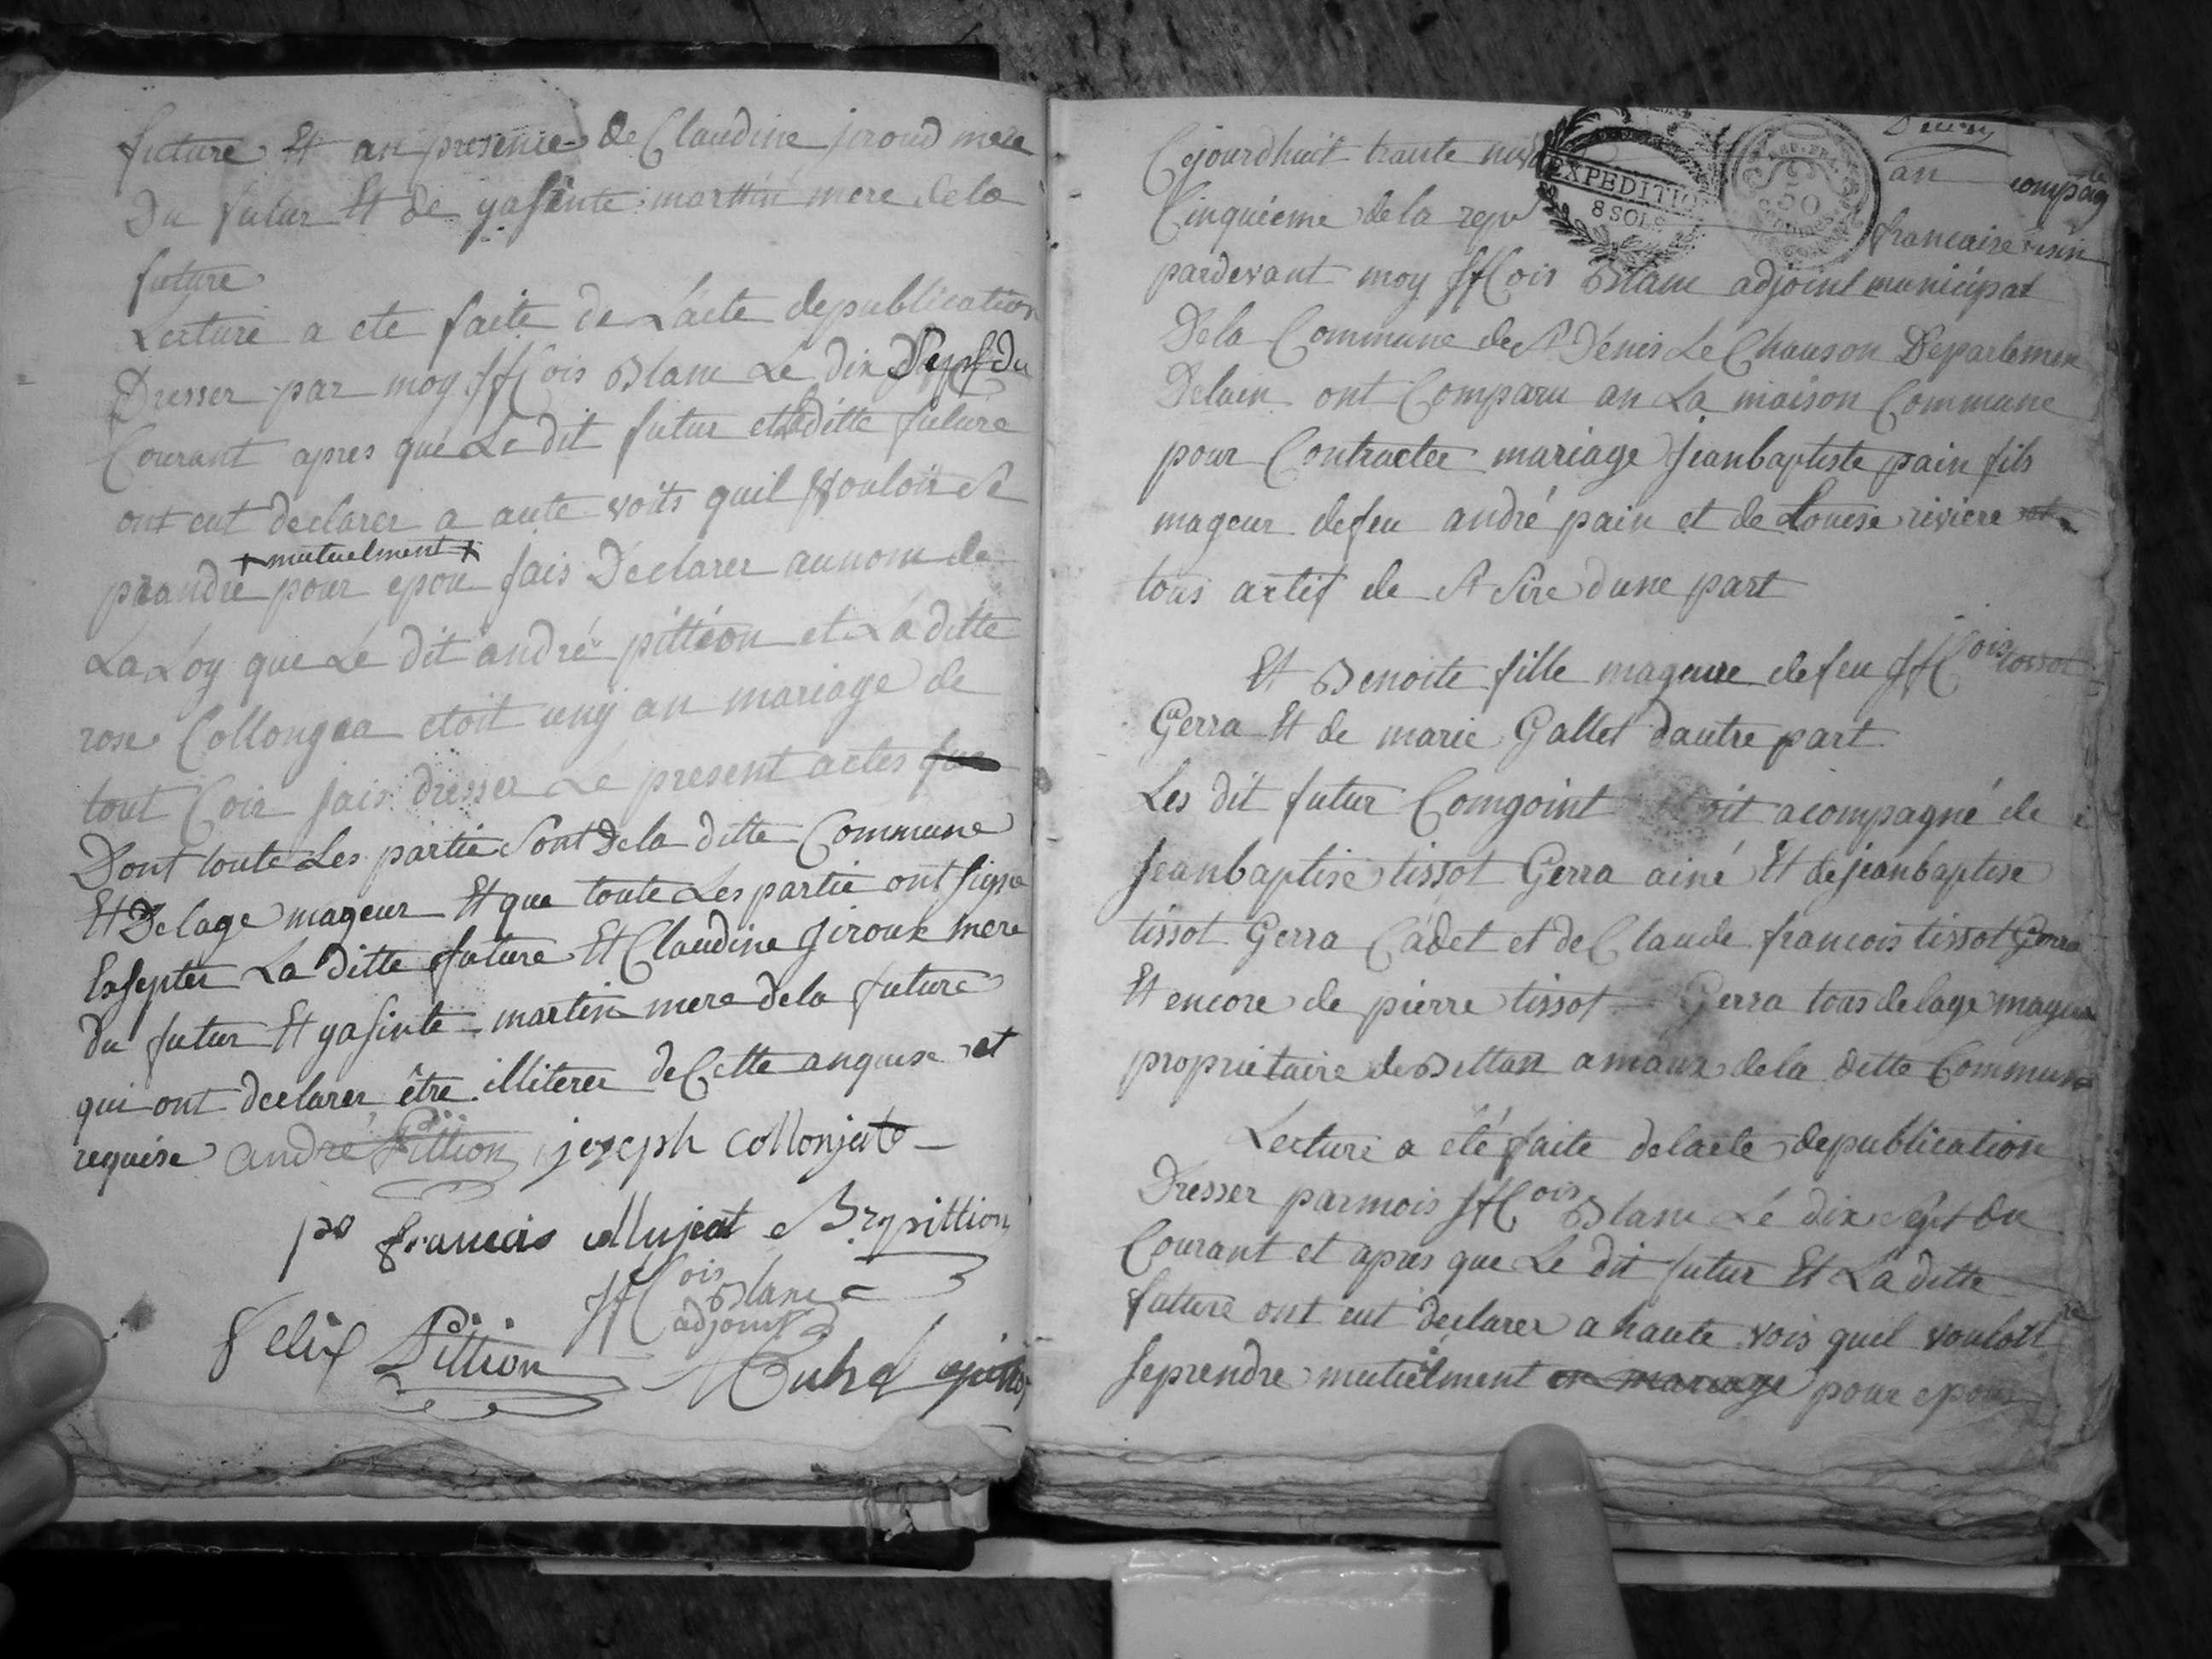 future Et an presence de Claudine jeroud mere
Du futur Et de yasinte marttin mere dela
future
Lecture a ete faite de L'acte depublication
Dresser par moy ffCois Blanc Le dix Sept du
Courant apres que Le dit futur et La ditte future
ont eut declarer a aute voits quil vouloit Se
+ mutuelment +
prandre pour epou jais Declarer aunom de
La Loy que Le dit andré pittion et La ditte
rose Collongea etoit uny an mariage de
tout Coir jais dresser Le present actes
Dont toute Les partie Sont Dela ditte Commune
Et De lage mageur Et que toute Les partie ont signe
Exsepter La ditte future Et Claudine Jiroux mere
du futur Et yasinte martin mere dela future
qui ont declarer être illiterer de Cette anquise et
requise andré Pittion joseph collonjat
francois Mujeat pittion
ffCois Blanc
adjoint
Felix Pittion
Cejourdhuit trante
an
compag
EXPEDITIO
8 SOLS
50
Cinquieme de la repu
francaise
pardevant moy ffCois Blanc adjoint municipal
Dela Commune de St Dénis Le Chauson Departemen
Delain ont Comparu an La maison Commune
pour Contracter mariage jeanbaptiste pain fils
mageur defeu andré pain et de Louise riviere
tous artif de St Sire dune part
Et Benoite fille mageure defeu ffCois tissot
Gerra Et de marie Gallet dautre part
Les dit futur Comgoint etoit acompagné de
Jeanbaptise tissot Gerra ainé Et dejeanbaptise
tissot Gerra Cadet et de Claude francois tissot Gerra
Et encore de pierre tissot Gerra tous delage mageur
proprietaire de amaux dela ditte Commune
Lecture a eté faite delacte depublication
Dresser parmois ffCois Blanc Lé dix Sept du
Courant et apres que Le dit futur Et La ditte
future ont eut declarer a haute vois quil vouloit
seprendre mutuelment en mariage pour epoux